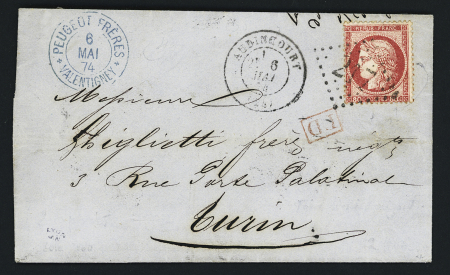 PEUGEOT FRÈRES
6
MAI
74
VALENTIGNEY
AUDINCOURT
6
MAI
REPUB. FRANC.
P.D.
Monsieur
Ghiglietti frères négts
3 Rue Porte Palatine
Turin